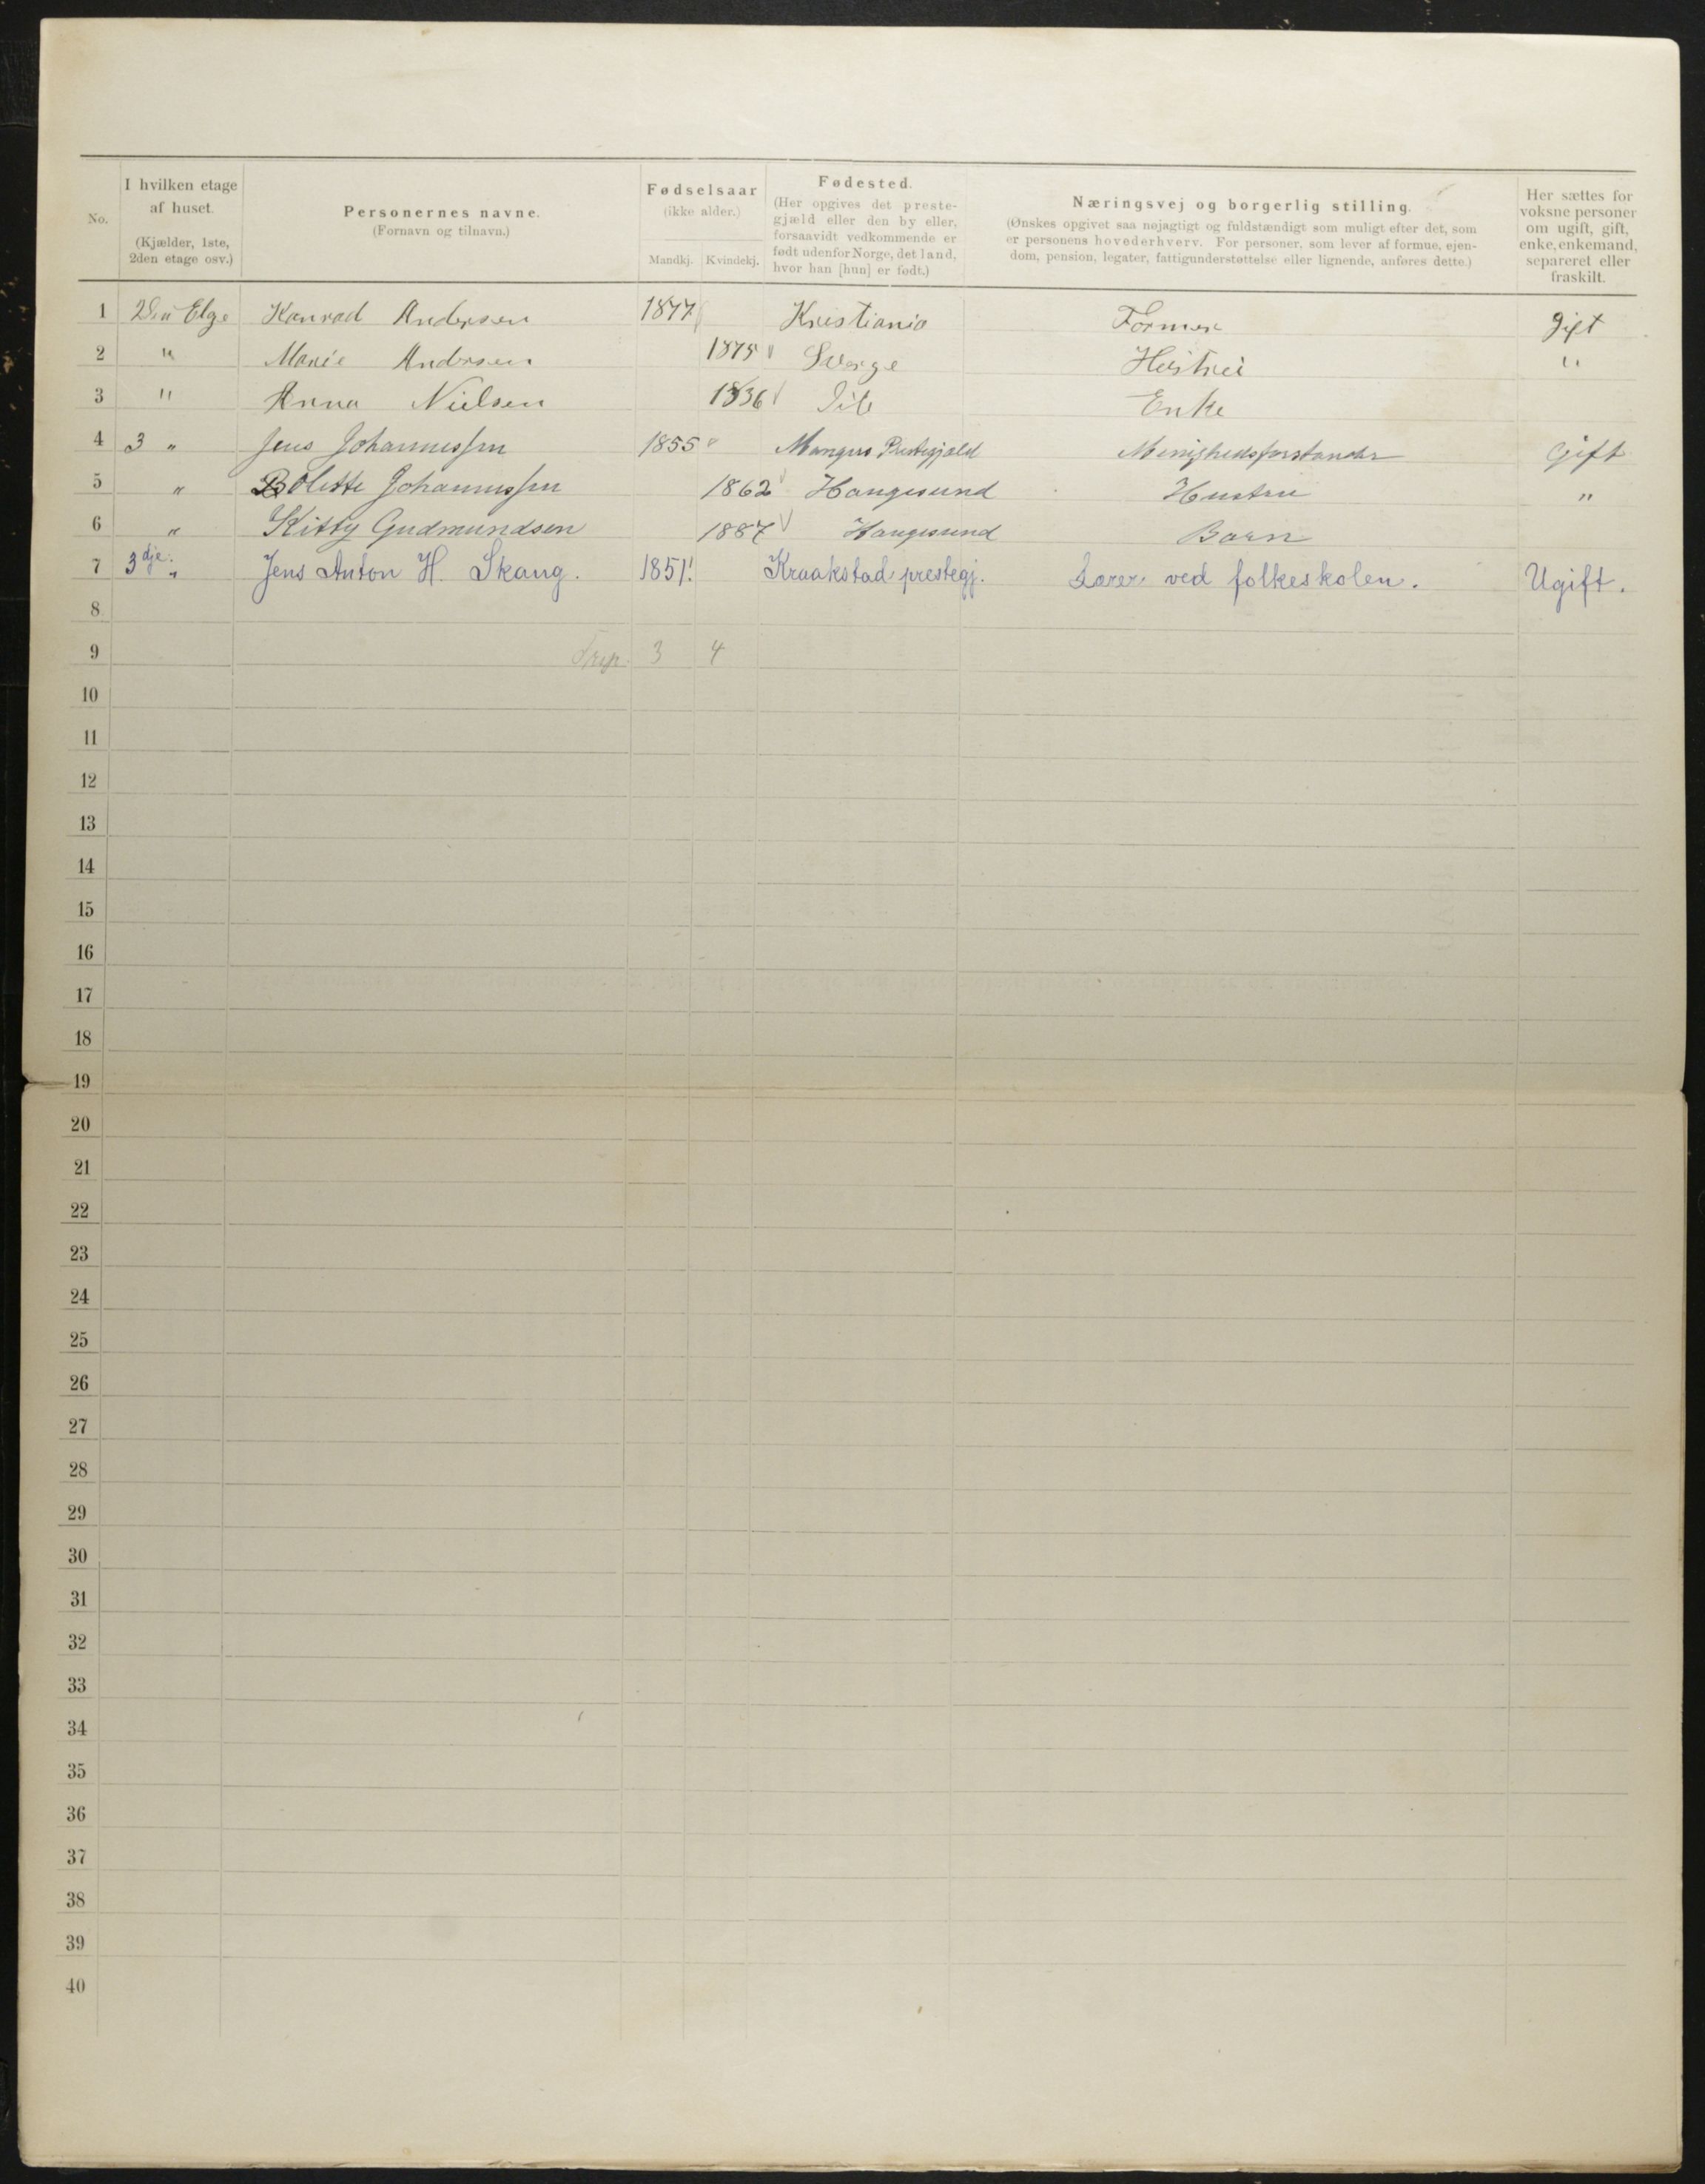 No.
I hvilken etage af huset. (Kjælder, 1ste, 2den etage osv.)
Personernes navne. (Fornavn og tilnavn.)
Fødselsaar (ikke alder.) Mandkj. Kvindekj.
Fødested. (Her opgives det prestegjæld eller den by eller, forsaavidt vedkommende er født udenfor Norge, det land, hvor han [hun] er født.)
Næringsvej og borgerlig stilling. (Ønskes opgivet saa nøjagtigt og fuldstændigt som muligt efter det, som er personens hovederhverv. For personer, som lever af formue, ejendom, pension, legater, fattigunderstøttelse eller lignende, anføres dette.)
Her sættes for voksne personer om ugift, gift, enke, enkemand, separeret eller fraskilt.
1 2den Etge Konrad Andersen 1877 Kristiania Former gift
2 " Marie Andersen 1875 Sverge Hustru "
3 " Anna Nielsen 1836 Enke
4 3 " Jens Johannessen 1855 Mangers Prestegjæld Menighedsforstander Gift
5 " Bolette Johannessen 1862 Haugesund Hustru "
6 " Kitty Gudmundsen 1887 Haugesund Barn
7 3dje " Jens Anton H. Skaug. 1851. Kraakstad prestegj. Lærer ved folkeskolen. Ugift.
8
9 3 4
10
11
12
13
14
15
16
17
18
19
20
21
22
23
24
25
26
27
28
29
30
31
32
33
34
35
36
37
38
39
40